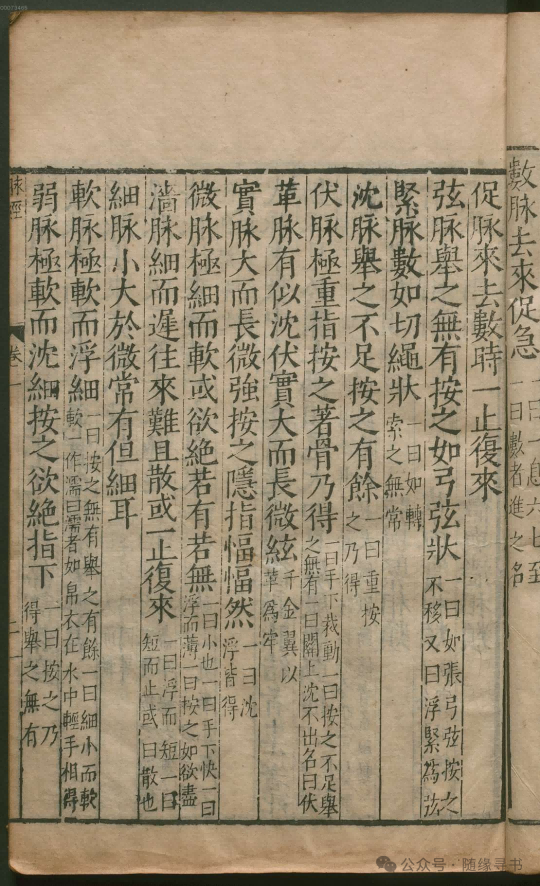 數脉去來促急 一曰一息六七至一曰數者進之名
促脉來去數時一止復來
弦脉舉之無有按之如弓弦狀 一曰如張弓弦按之不移又曰浮緊為弦
緊脉數如切繩狀 一曰如轉索之無常
沈脉舉之不足按之有餘 一曰重按之乃得
伏脉極重指按之著骨乃得 一曰手下裁動一曰按之不足舉之無有一曰關上沈不出名曰伏
革脉有似沈伏實大而長微絃 千金翼以革為牢
實脉大而長微強按之隱指愊愊然 一曰沈浮皆得
微脉極細而軟或欲絶若有若無 一曰小也一曰手下快一曰浮而薄一曰按之如欲盡
濇脉細而遲往來難且散或一止復來 一曰浮而短一曰短而止或曰散也
細脉小大於微常有但細耳
軟脉極軟而浮細 一曰按之無有舉之有餘一曰細小而軟軟一作濡曰濡者如帛衣在水中輕手相得
弱脉極軟而沈細按之欲絶指下 一曰按之乃得舉之無有
脉經
卷一
一
公众号·随缘寻书